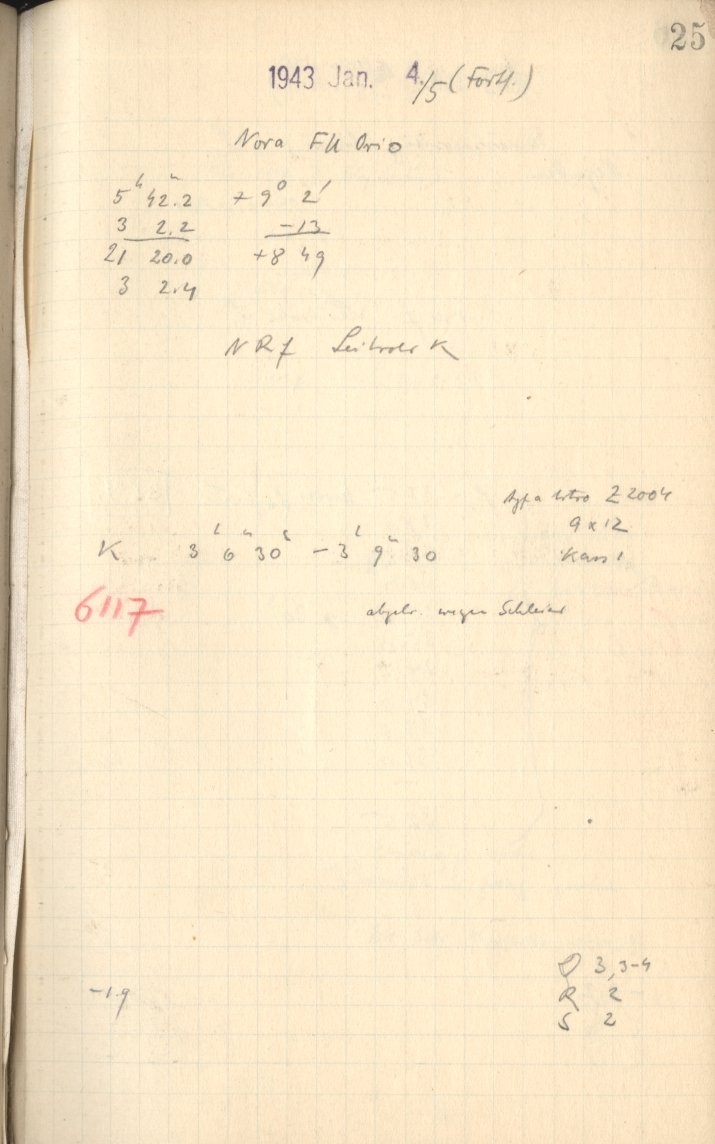 25
1943 Jan. 4./5 (Forts.)
Nova FU Orio
5ʰ 42.2ᵐ +9° 2'
3 2.2 -13
21 20.0 +8 49
3 2.4
N R f Leitrohr K
Agfa Astro Z 2004
9 x 12
K 3ʰ 6ᵐ 30ˢ – 3ʰ 9ᵐ 30 Kass 1
6117 abgebr. wegen Schleier
3,3-4
-1.9 R 2
S 2